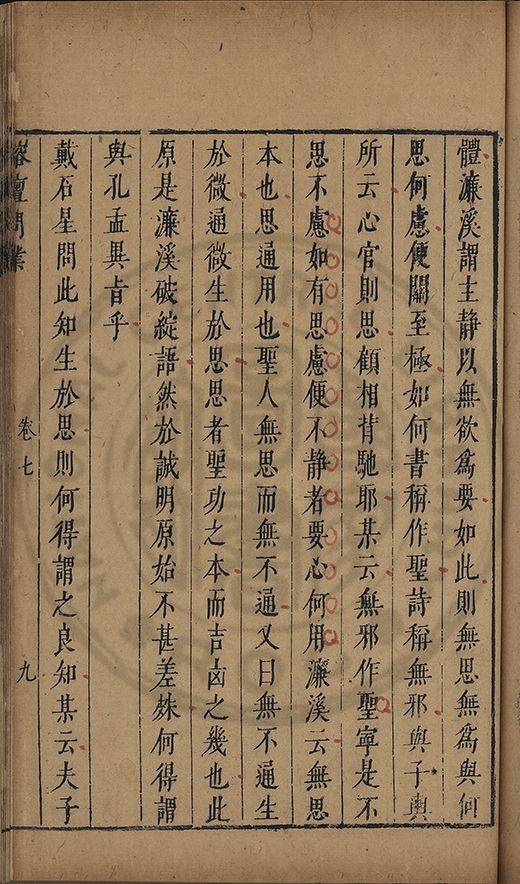 體濂溪謂主静以無欲爲要如此則無思無爲與何
思何慮便關至極如何書稱作聖詩稱無邪與子輿
所云心官則思顧相背馳耶某云無邪作聖寧是不
思不慮如有思慮便不静者要心何用濂溪云無思
本也思通用也聖人無思而無不通又曰無不通生
於微通微生於思思者聖功之本而吉凶之幾也此
原是濂溪破綻語然於誠明原始不甚差殊何得謂
與孔孟異旨乎
戴石星問此知生於思則何得謂之良知某云夫子
榕壇問業
卷七
九